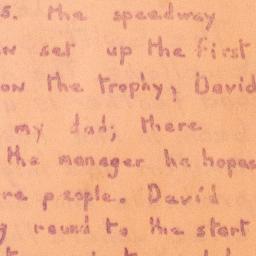 s. the speedway
set up the first
the trophy, David
my dad; there
the manager he hopes
people. David
round to the start